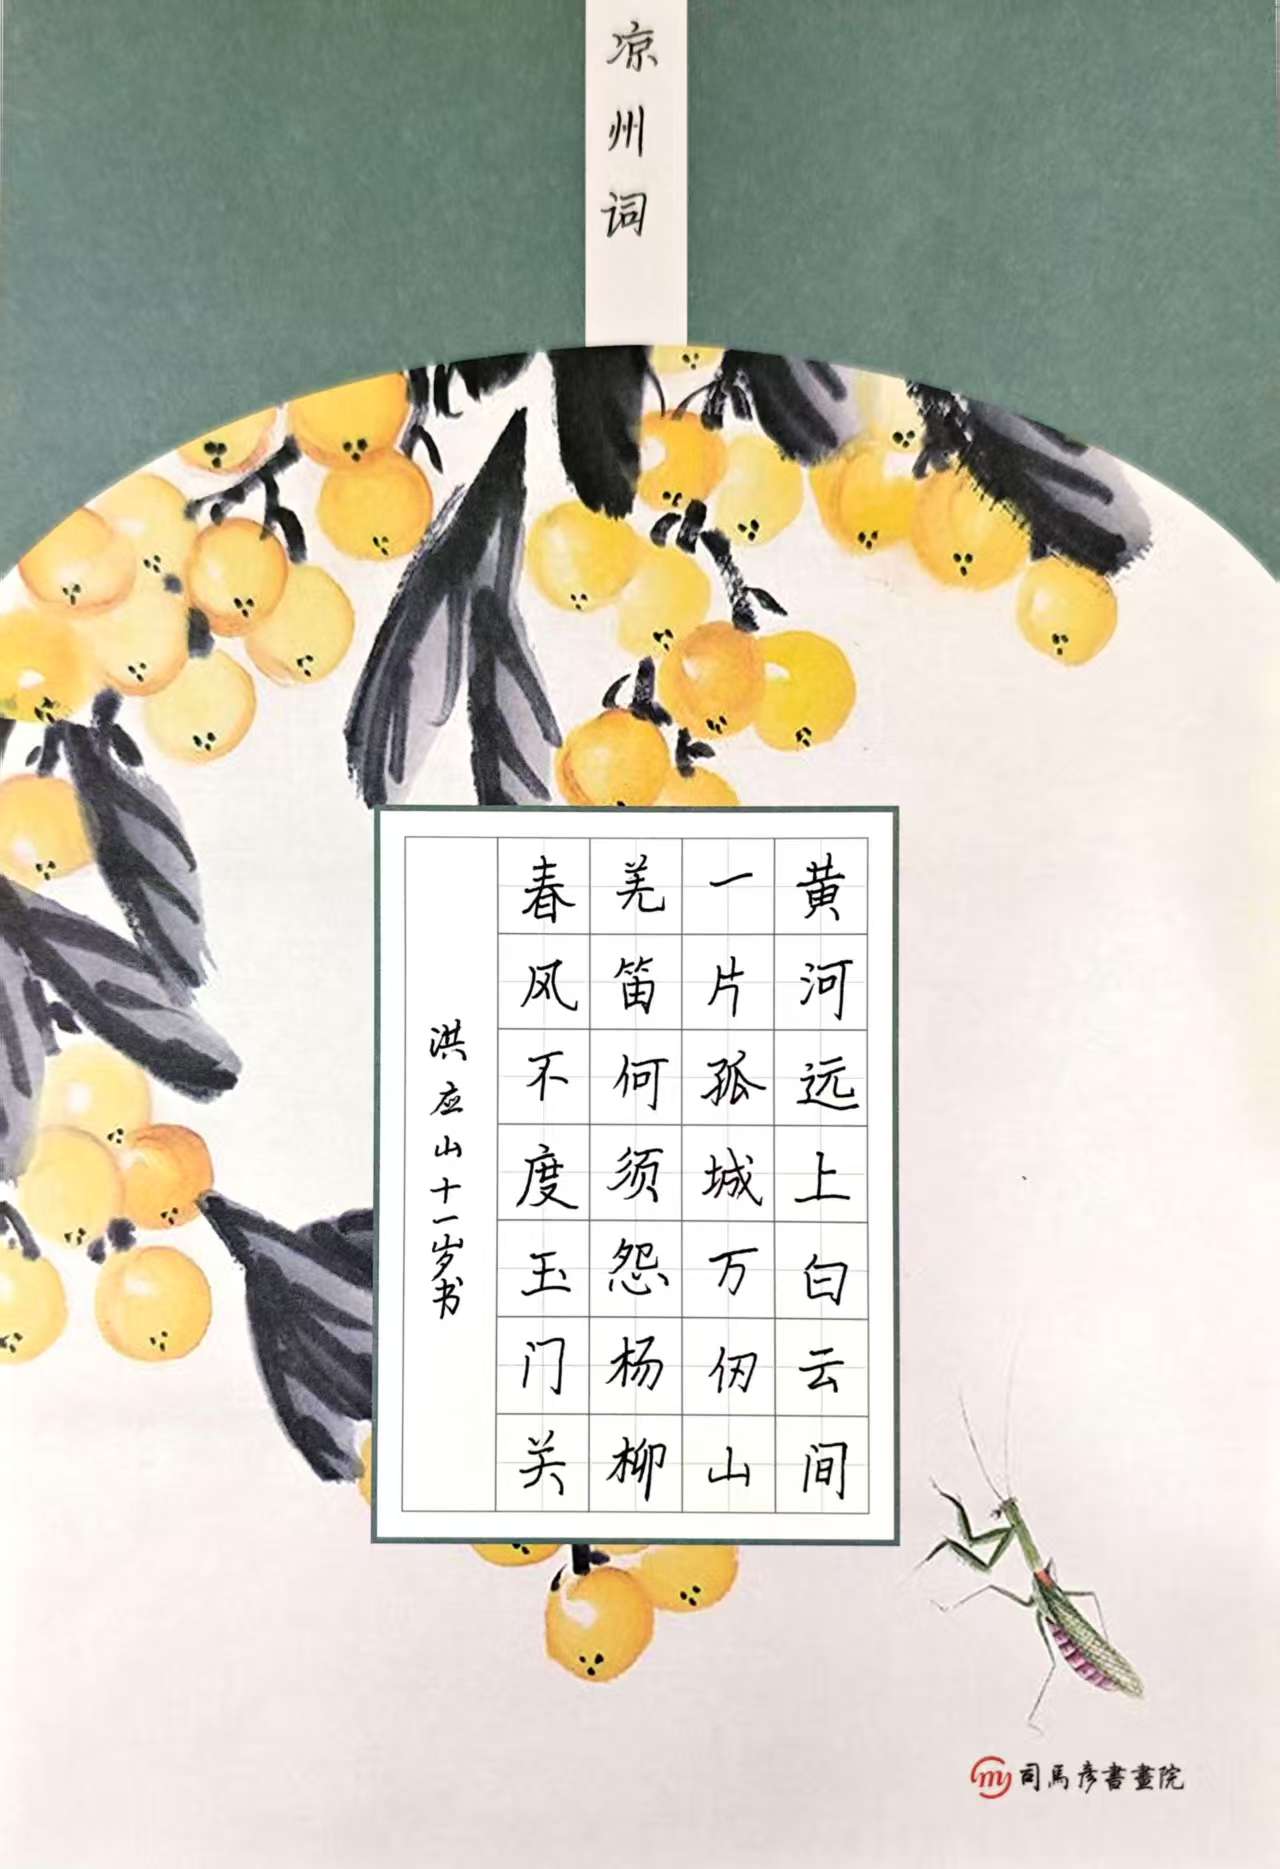 凉州词
黄河远上白云间
一片孤城万仞山
羌笛何须怨杨柳
春风不度玉门关
洪应山十一岁书
my司馬彦書畫院